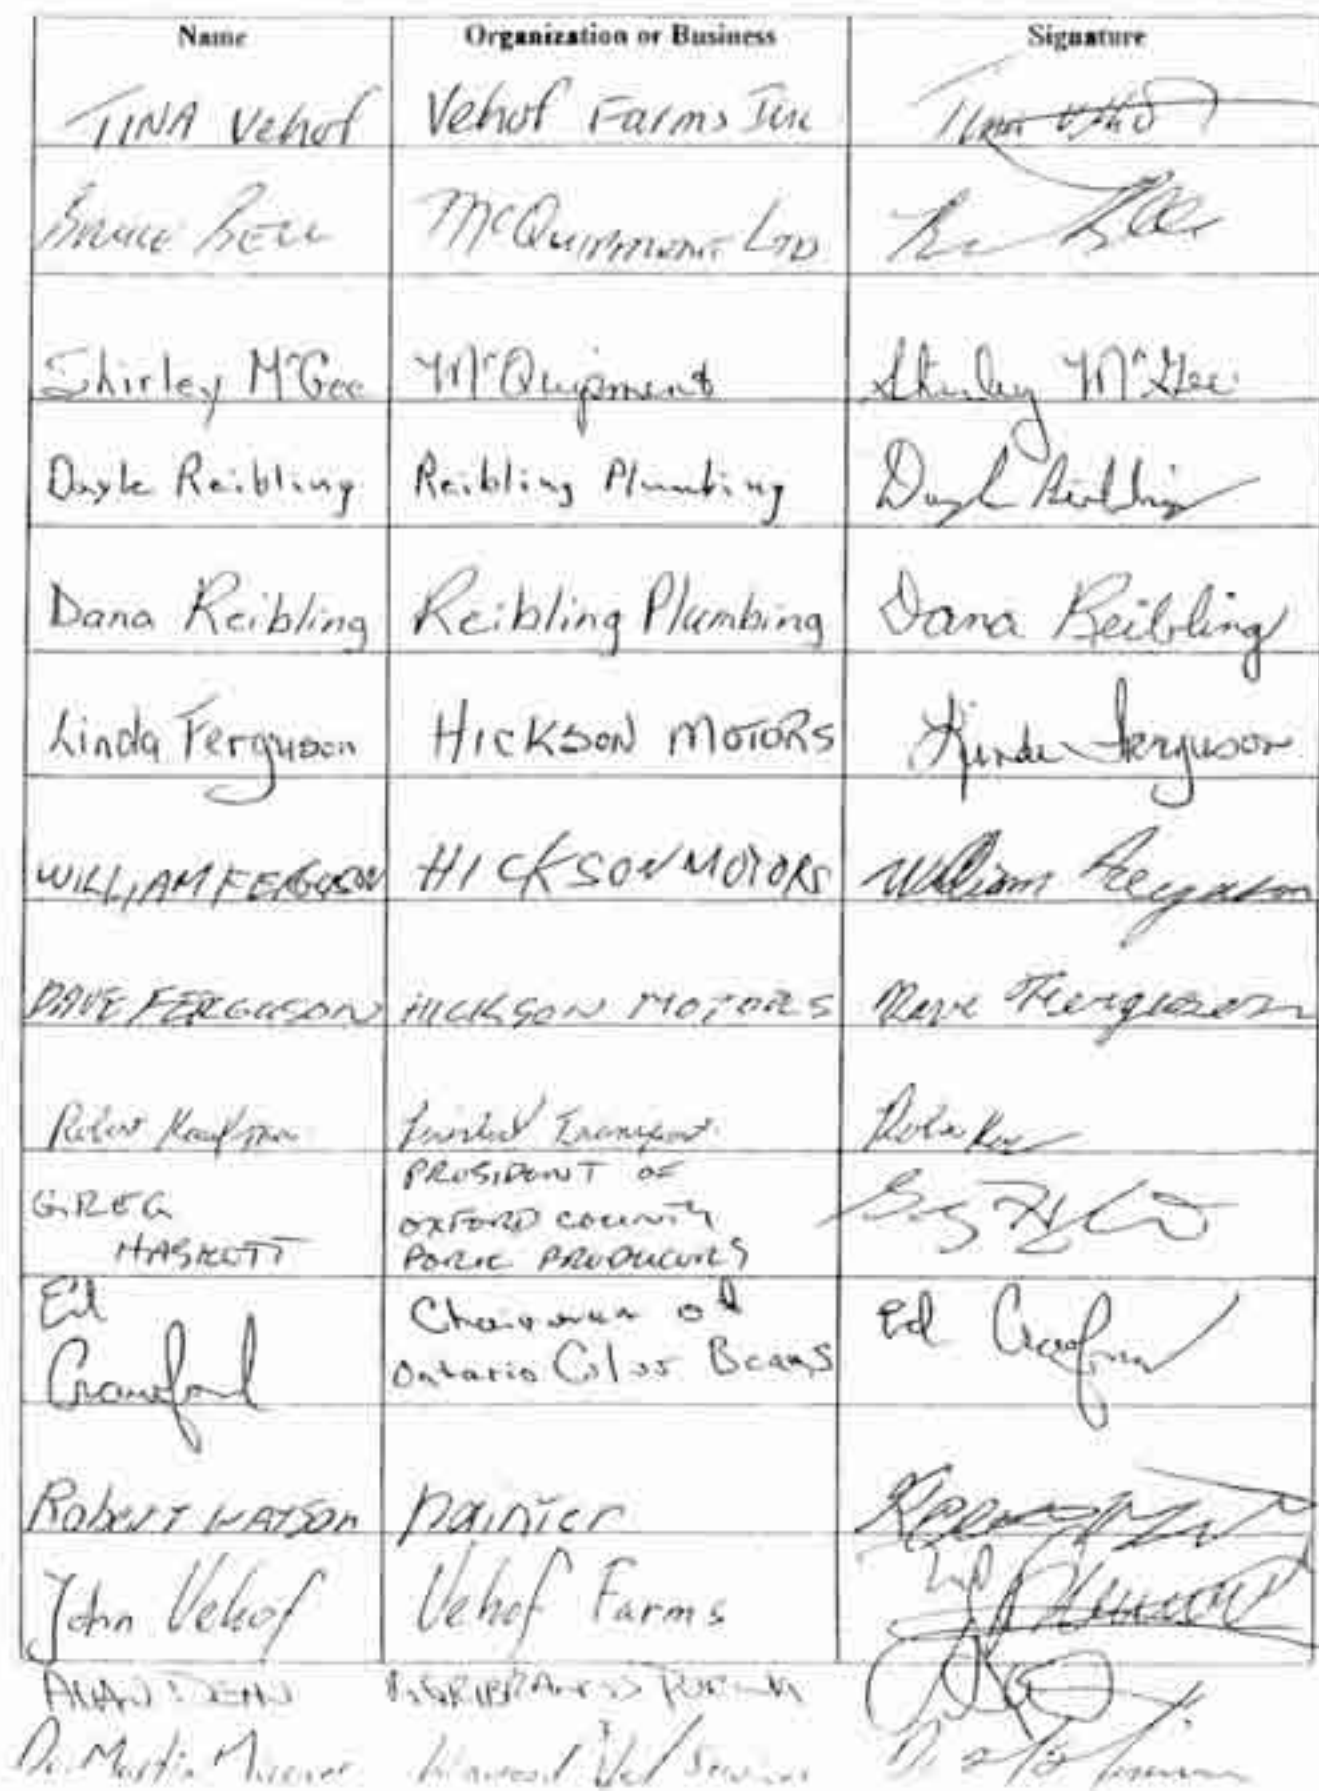 Name Organization or Business Signature
TINA Vehof Vehof Farms Inc
BRUCE BELL McQUIPMENT LTD
Shirley McGee McQuipment Shirley McGee
Dayle Reibling Reibling Plumbing Dayle Reibling
Dana Reibling Reibling Plumbing Dana Reibling
Linda Ferguson HICKSON MOTORS Linda Ferguson
WILLIAM FERGUSON HICKSON MOTORS William Ferguson
DAVE FERGUSON HICKSON MOTORS Dave Ferguson
Robert Transport
GREG PRESIDENT OF
HASKETT OXFORD COUNTY
PORK PRODUCERS
Ed Chairman of Ed Crawford
Crawford Ontario Beans
Robert WATSON painter
John Vehof Vehof Farms
Dr. Martin